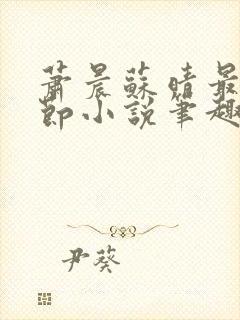 蕭晨蘇晴最
節小說筆趣
尹葵